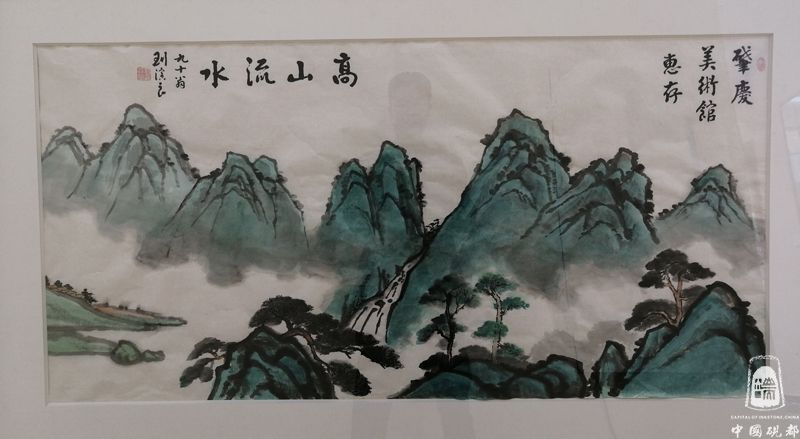 肇慶
美術館
惠存
高山流水
九十翁
CAPITAL OF INKSTONE, CHINA
中國硯都